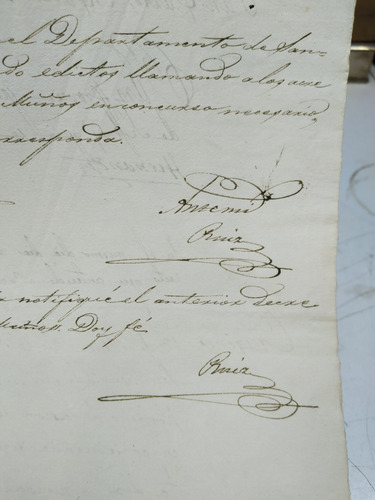 el Departamento de San-
do edictos llamando a los acre
Muños en concurso necesario,
rresponda.
Ante mi
Ruiz
notifiqué el anterior decre
Doy fé
Ruiz